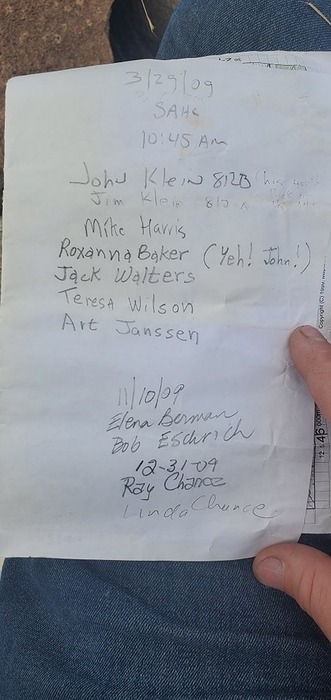 3/29/09
SAHC
10:45 AM
John Klein 812B
Jim Klein
Mike Harris
Roxanna Baker (Yeh! John!)
Jack Walters
Teresa Wilson
Art Janssen
11/10/09
Elena Berman
Bob Eschrich
12-31-09
Ray Chance
Linda Chance
Copyright (C)